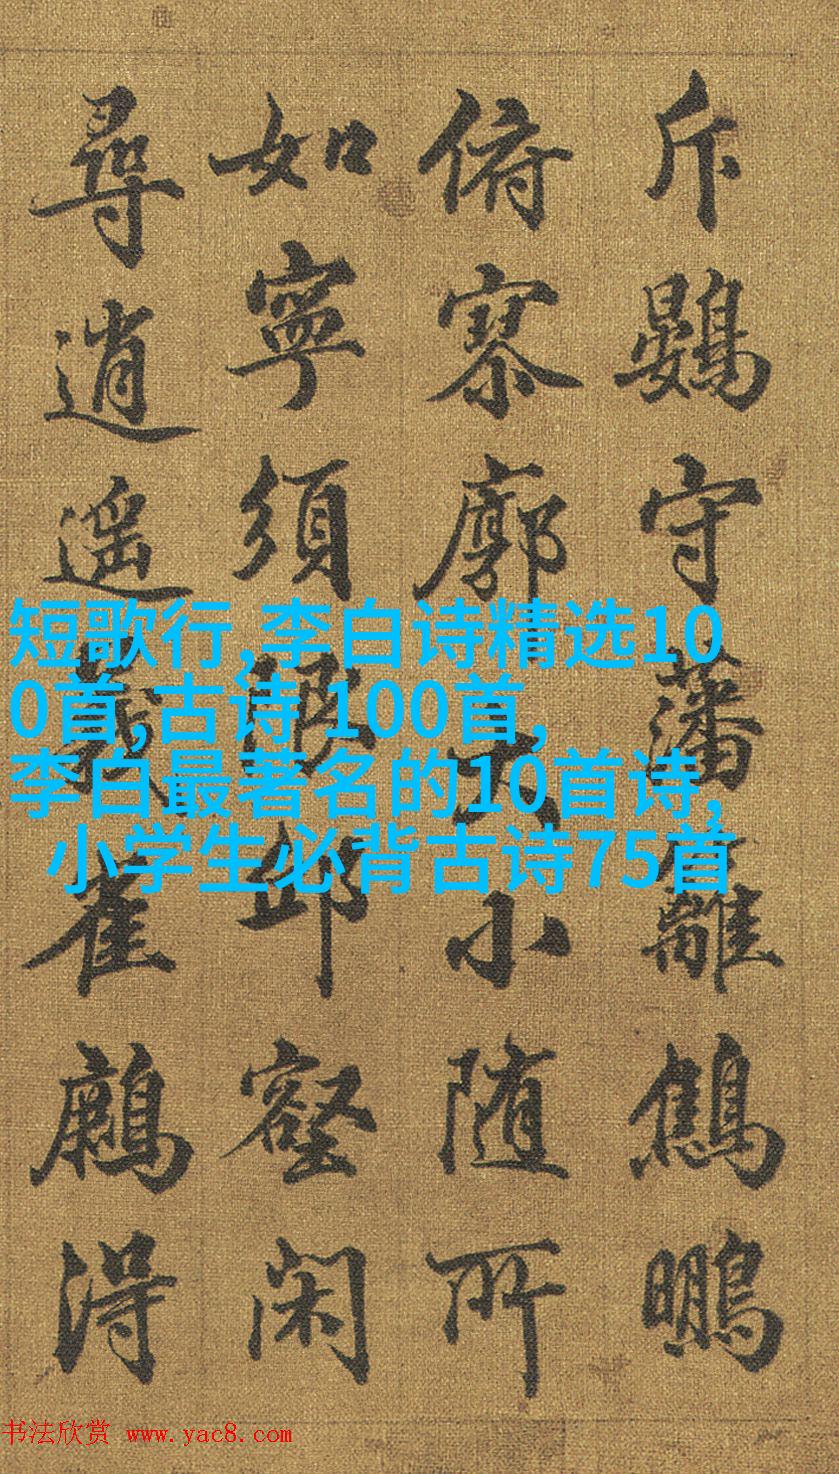 斥鷃守藩籬鷦鵬
俯寥廓大小随所
如寧須限邱壑閑
尋逍遥義雀得
短歌行,李白诗精选10
0首,古诗 100首,
李白最著名的10首诗,
小学生必背古诗75首
书法欣赏 www.yac8.com